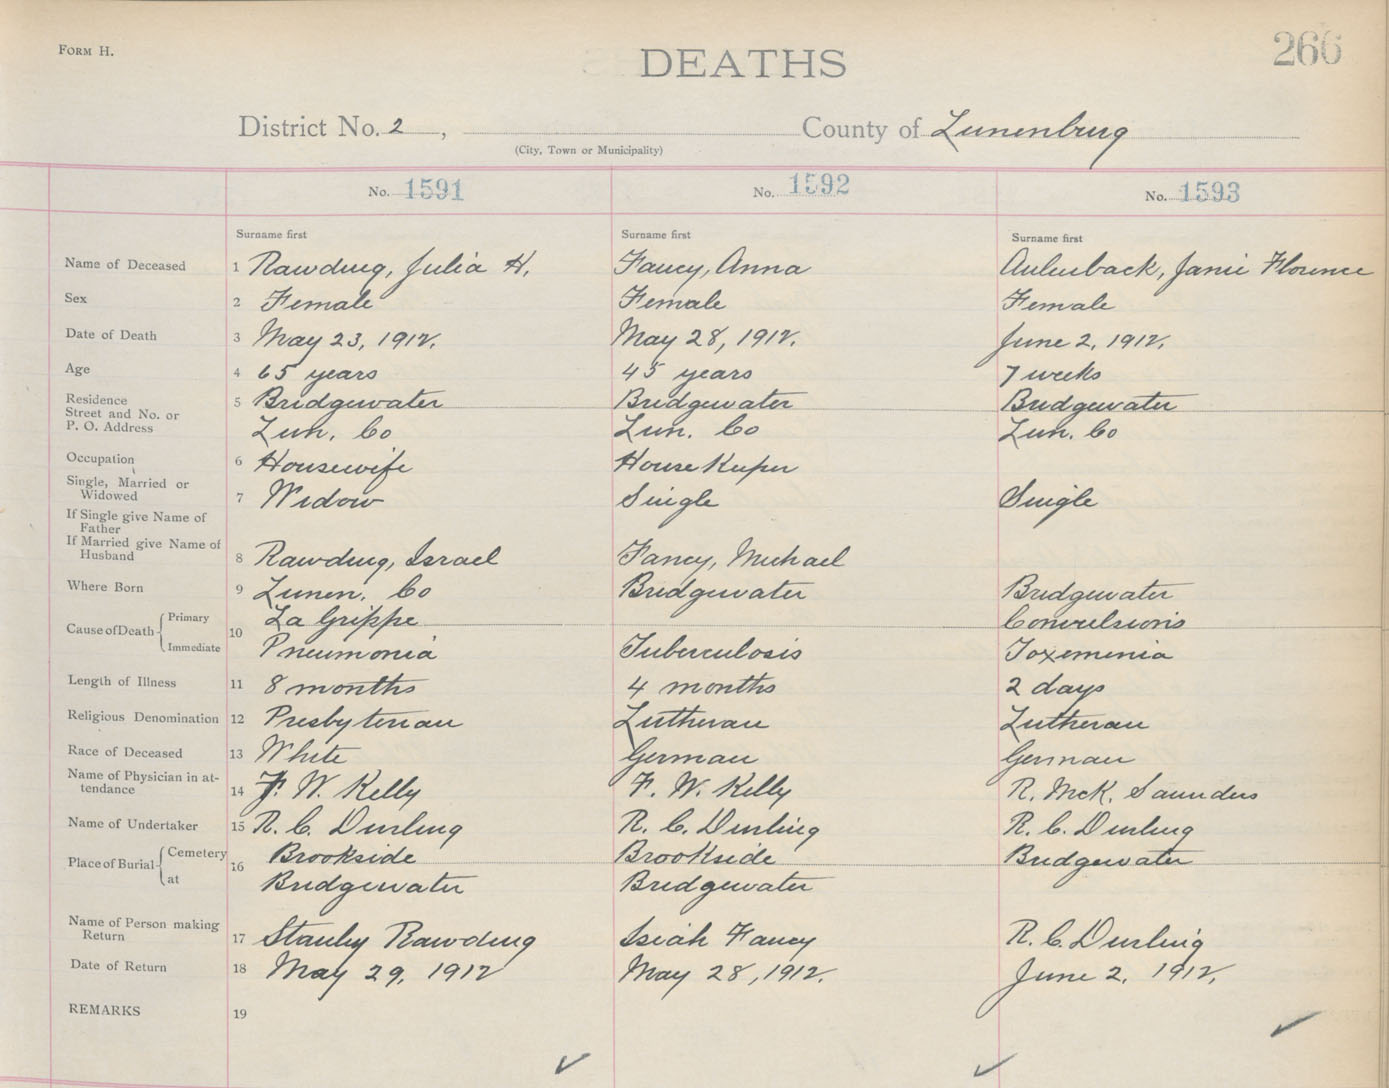 FORM H.
DEATHS
266
District No. 2, County of Lunenburg
(City, Town or Municipality)
No. 1591 No. 1592 No. 1593
Surname first Surname first Surname first
Name of Deceased 1 Rawding, Julia H. Fancy, Anna Aulenback, Janie Florence
Sex 2 Female Female Female
Date of Death 3 May 23, 1912. May 28, 1912. June 2, 1912.
Age 4 65 years 45 years 7 weeks
Residence 5 Bridgewater Bridgewater Bridgewater
Street and No. or
P. O. Address Lun. Co Lun. Co Lun. Co
Occupation 6 Housewife House Keeper
Single, Married or
Widowed 7 Widow Single Single
If Single give Name of
Father
If Married give Name of
Husband 8 Rawding, Israel Fancy, Michael
Where Born 9 Lunen. Co Bridgewater Bridgewater
Cause of Death Primary 10 La Grippe Convulsions
Immediate Pneumonia Tuberculosis Toxemenia
Length of Illness 11 8 months 4 months 2 days
Religious Denomination 12 Presbyterian Lutheran Lutheran
Race of Deceased 13 White German German
Name of Physician in at-
tendance 14 F. W. Kelly F. W. Kelly R. McK. Saunders
Name of Undertaker 15 R. C. Durling R. C. Durling R. C. Durling
Place of Burial Cemetery 16 Brookside Brookside Bridgewater
at Bridgewater Bridgewater
Name of Person making
Return 17 Stanley Rawding Isiah Fancy R. C. Durling
Date of Return 18 May 29, 1912 May 28, 1912. June 2, 1912.
REMARKS 19